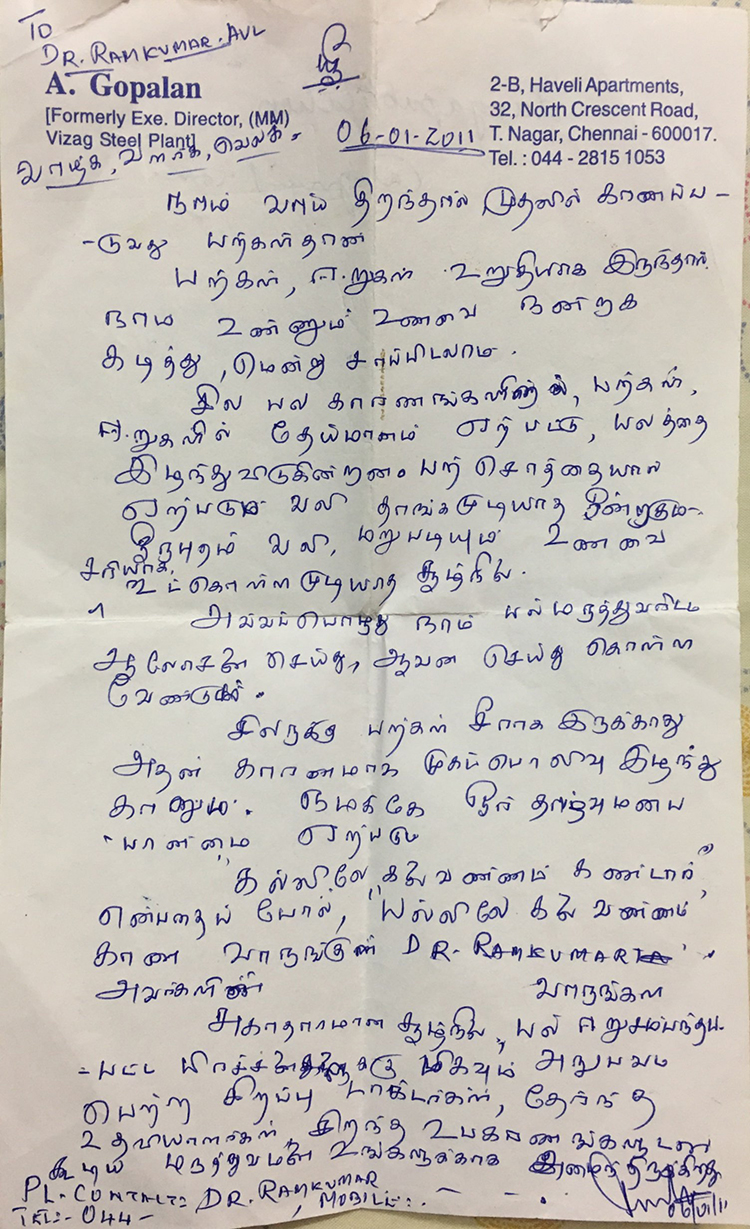 TO
DR. RAMKUMAR. AVL
A. Gopalan
[Formerly Exe. Director, (MM)
Vizag Steel Plant]
2-B, Haveli Apartments,
32, North Crescent Road,
T. Nagar, Chennai - 600017.
Tel. : 044 - 2815 1053
வாழ்க, வளர்க, வெல்க.
06-01-2011
நாம் வாய் திறந்தால் முதலில் காணப்ப-
-டுவது பற்கள்தான்
பற்கள், ஈறுகள் உறுதியாக இருந்தால்
நாம் உண்ணும் உணவை நன்றாக
கடித்து, மென்று சாப்பிடலாம்.
சில பல காரணங்களினால், பற்கள்,
ஈறுகளில் தேய்மானம் ஏற்பட்டு, பலத்தை
இழந்துவிடுகின்றன. பற் சொத்தையால்
ஏற்படும் வலி தாங்கமுடியாத ஒன்றாகும்.
ஒருபுறம் வலி, மறுபடியும் உணவை
சரியாக உட்கொள்ள முடியாத சூழ்நிலை.
அவ்வப்பொழுது நாம் பல்மருத்துவரிடம்
ஆலோசனை செய்து, ஆவன செய்து கொள்ள
வேண்டும்.
சிலருக்கு பற்கள் சீராக இருக்காது
அதன் காரணமாக முகப்பொலிவு இழந்து
காணும். நமக்கே ஓர் தாழ்வுமனப்
பான்மை ஏற்படும்
"கல்லிலே கலைவண்ணம் கண்டார்"
என்பதைப் போல், "பல்லிலே கலைவண்ணம்"
காண வாருங்கள் DR. RAMKUMAR
அவர்களிடம் வாருங்கள்
சுகாதாரமான சூழ்நிலை, பல் ஈறுசம்பந்தப்-
-பட்ட பிரச்சனைகளுக்கு மிகவும் அநுபவம்
பெற்ற சிறப்பு டாக்டர்கள், தேர்ந்த
உதவியாளர்கள், சிறந்த உபகரணங்களுடன்
கூடிய மருத்துவமனை உங்களுக்காக அமைந்திருக்கிறது
PL. CONTACT: DR. RAMKUMAR
TEL:- 044 - MOBILE:
06/01/11